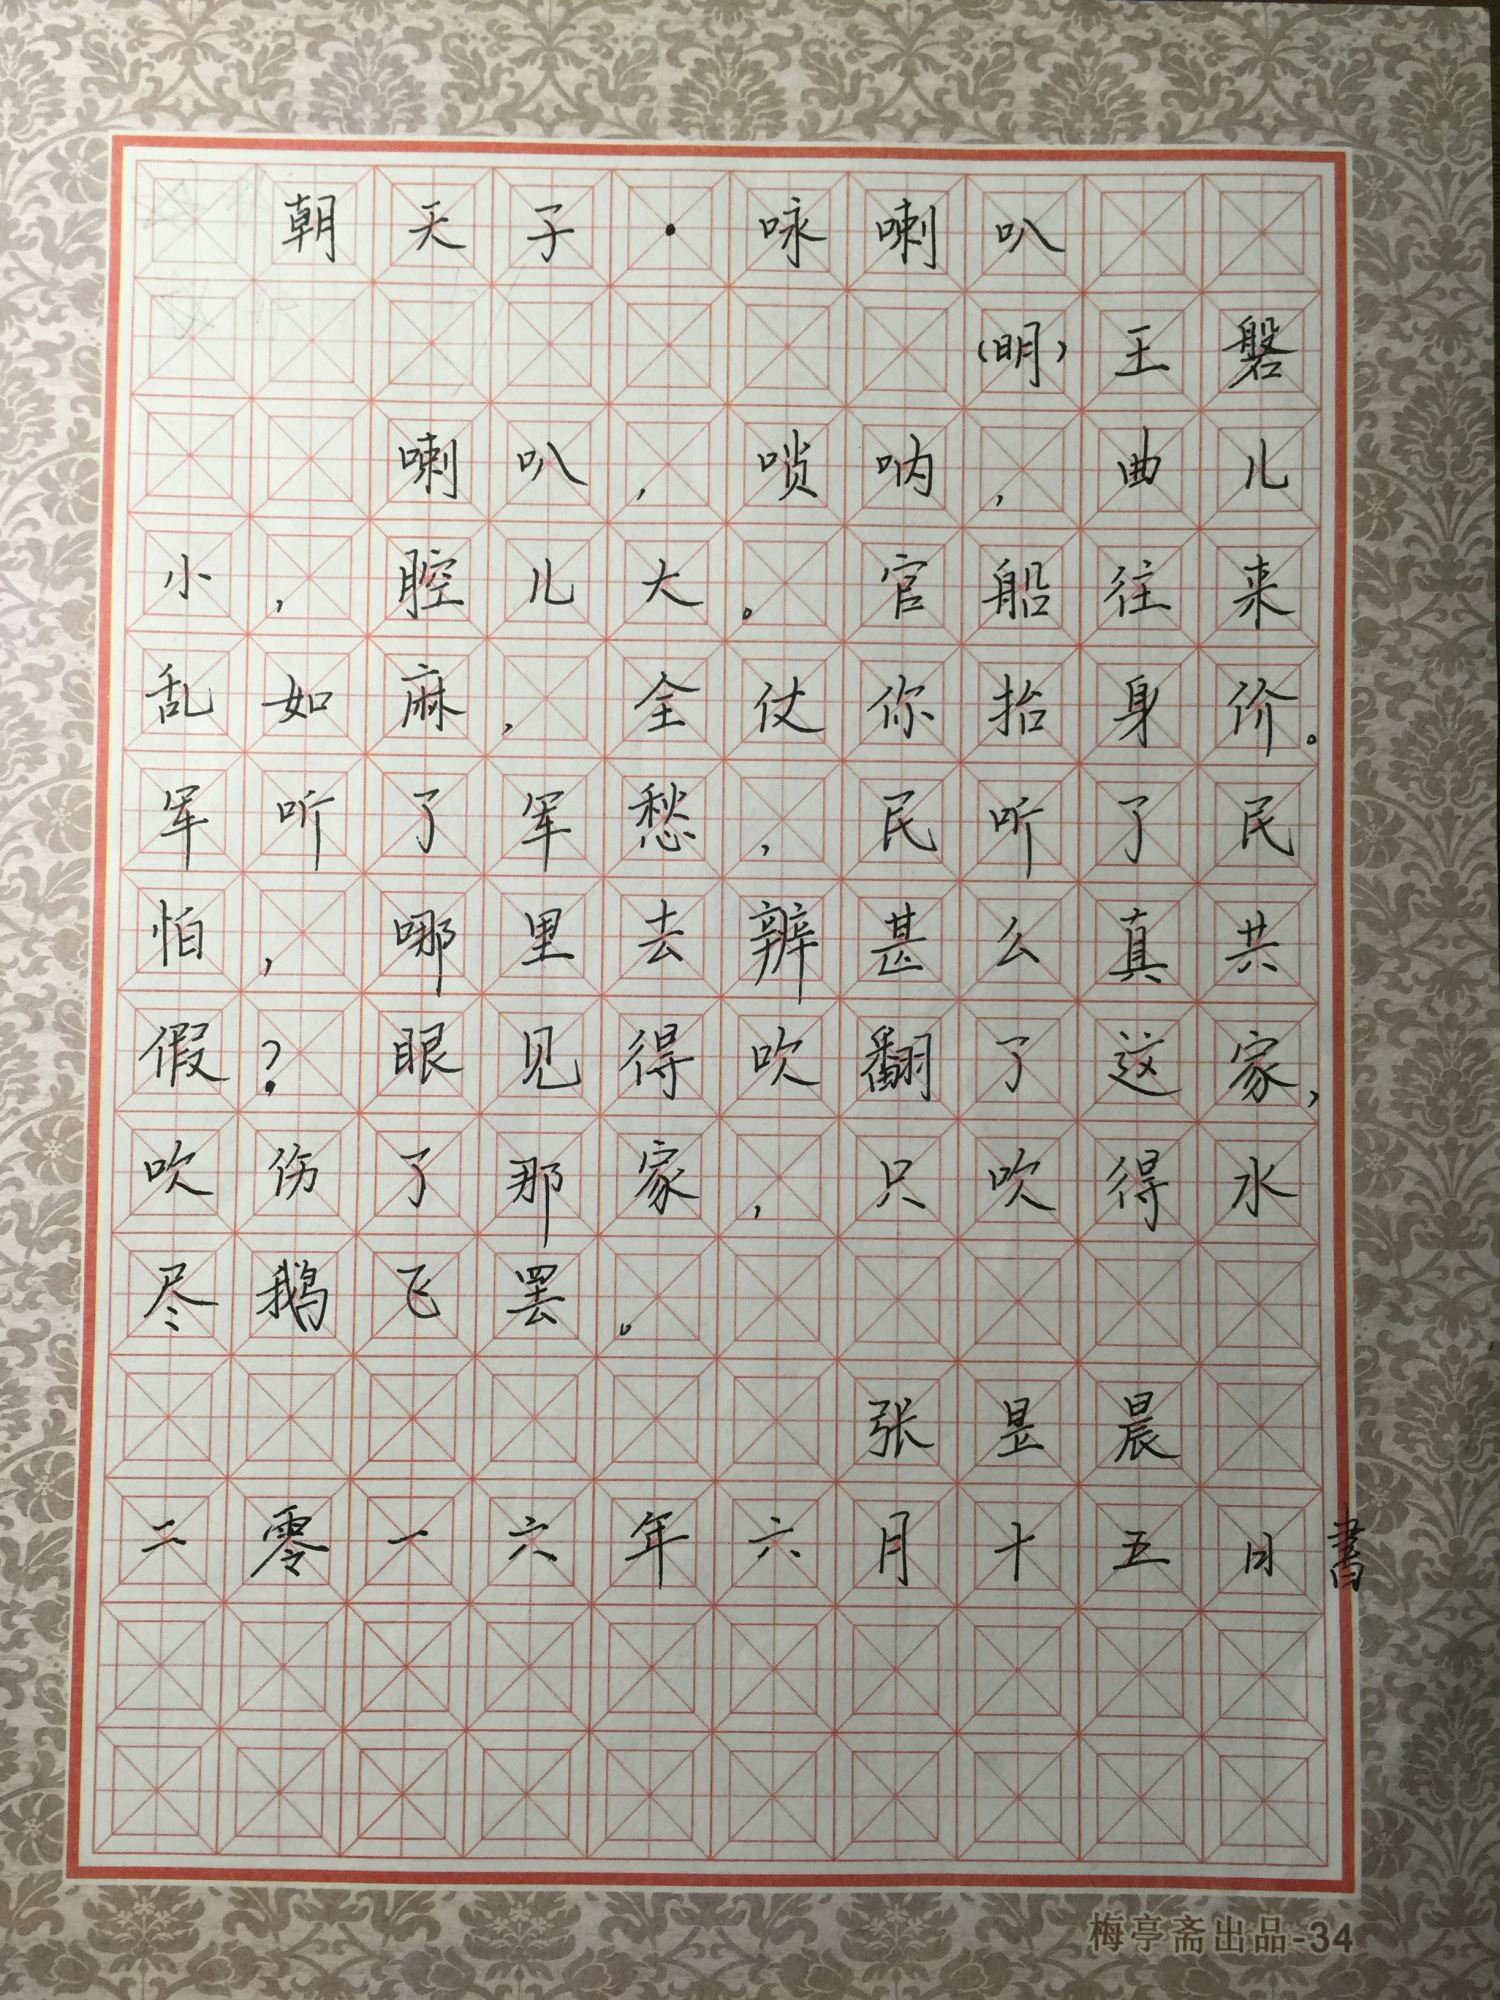 朝天子·咏喇叭
(明)王磐
喇叭,唢呐,曲儿
小,腔儿大。官船往来
乱如麻,全仗你抬身价。
军听了军愁,民听了民
怕,哪里去辨甚么真共
假?眼见得吹翻了这家,
吹伤了那家,只吹得水
尽鹅飞罢。
张昱晨
二零一六年六月十五日書
梅亭斋出品-34